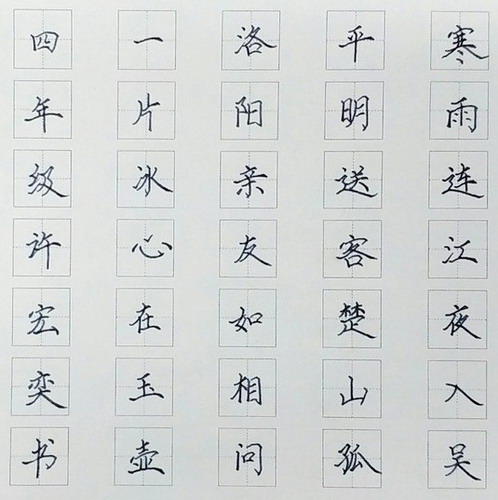 寒雨连江夜入吴
平明送客楚山孤
洛阳亲友如相问
一片冰心在玉壶
四年级许宏奕书